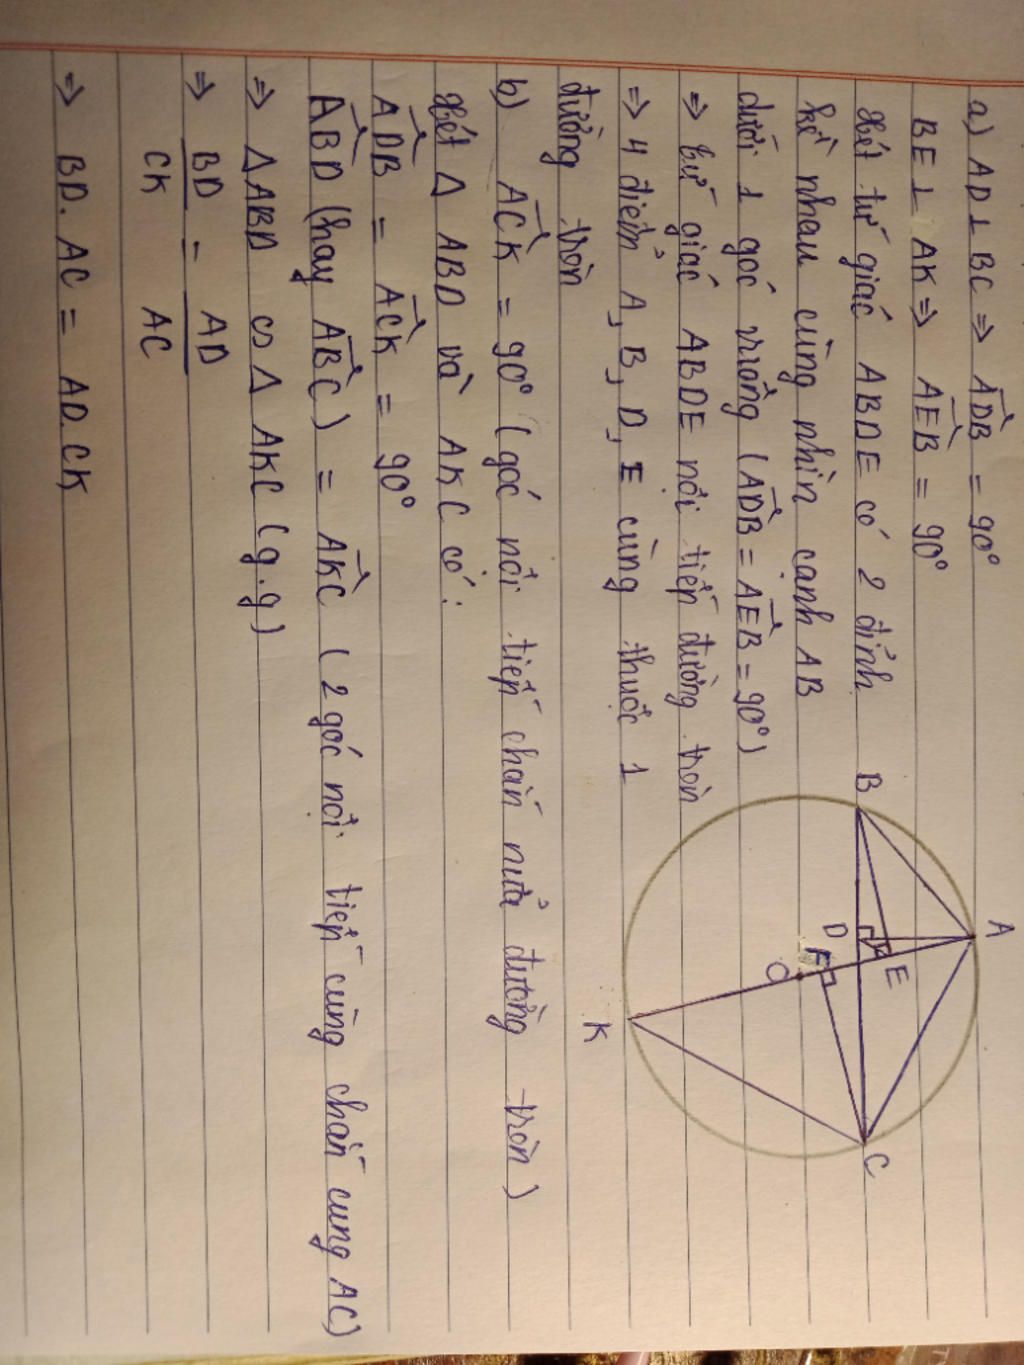 a) AD ⊥ BC => \widehat{ADB} = 90°
BE ⊥ AK => \widehat{AEB} = 90°
Xét tứ giác ABDE có 2 đỉnh
kề nhau cùng nhìn cạnh AB
dưới 1 góc vuông (\widehat{ADB} = \widehat{AEB} = 90°)
=> tứ giác ABDE nội tiếp đường tròn
=> 4 điểm A, B, D, E cùng thuộc 1
đường tròn
b) \widehat{ACK} = 90° (góc nội tiếp chắn nửa đường tròn)
Xét Δ ABD và AKC có:
\widehat{ADB} = \widehat{ACK} = 90°
\widehat{ABD} (hay \widehat{ABC}) = \widehat{AKC} (2 góc nội tiếp cùng chắn cung AC)
=> Δ ABD ∽ Δ AKC (g.g)
=> \frac{BD}{CK} = \frac{AD}{AC}
=> BD. AC = AD. CK
A
B
D
E
F
O
C
K